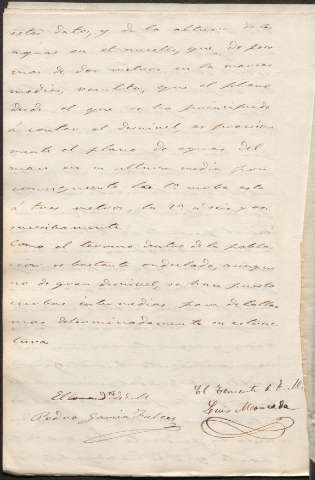 estos datos, y de la altura de las
aguas en el muelle, que de poco
mas de dos metros en la marea
media, resulta, que el plano
desde el que se ha principiado
á contar el desnivel es precisa
mente el plano de aguas del
mar en su altura media por
consiguiente la 1ª curba está
á tres metros, la 2ª á seis, y asi
sucesibamente.
Como el terreno dentro de la pobla
cion es bastante ondulado, aunque
no de gran desnivel, se han puesto
curbas intermedias para detallar
mas determinadamente su estruc
tura
El Teniente de E. M.
Pedro García
Luis Moncada